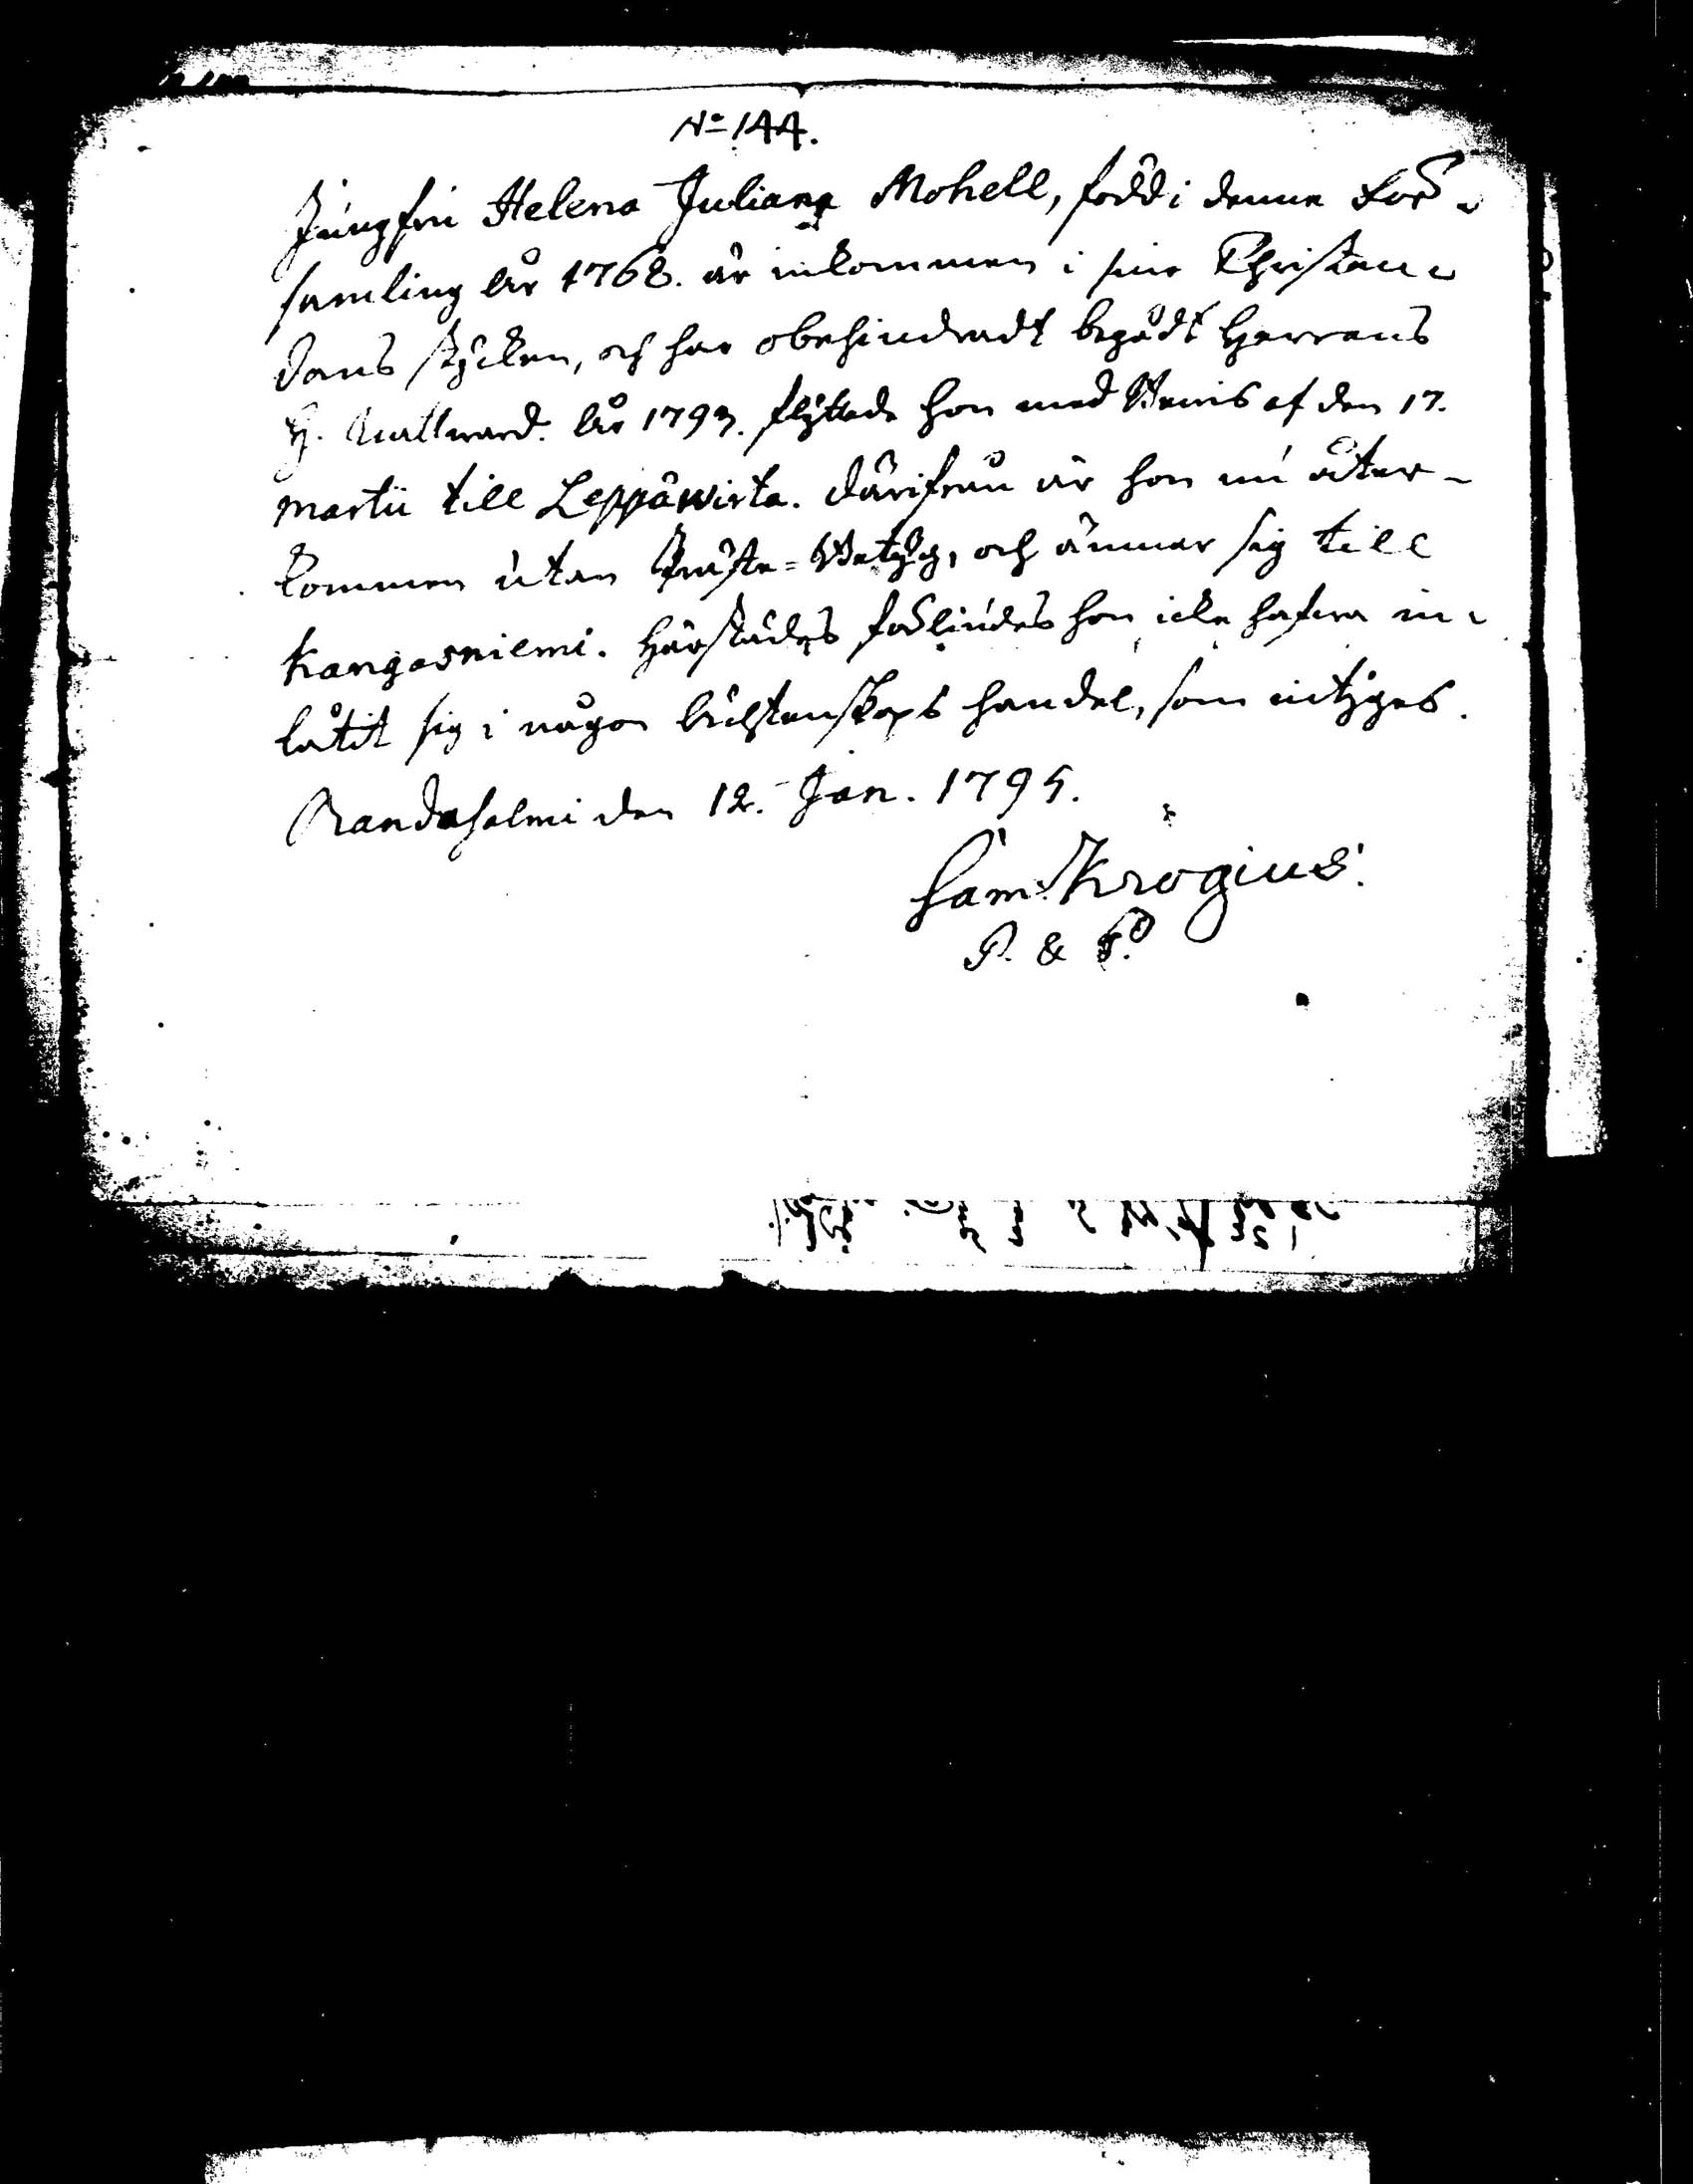 No 144.
Jungfru Helena Juliana Mohell, född i denne För-
samling år 1768. är inkommen i sine Christen-
doms stycken, och har obehindradt begådt Herrens
H. Nattward. År 1793. flyttade hon med Bevis af den 17.
Martii till Leppäwirta. Därifrån är hon nu åter-
kommen utan Präste-Betyg, och ämnar sig till
Kangasniemi. Härstädes förljudes hon icke hafwa in-
låtit sig i någon äcktenskaps handel, som intygas.
Randasalmi den 12. Jan. 1795.
Sam: Krogius.
P. & P.